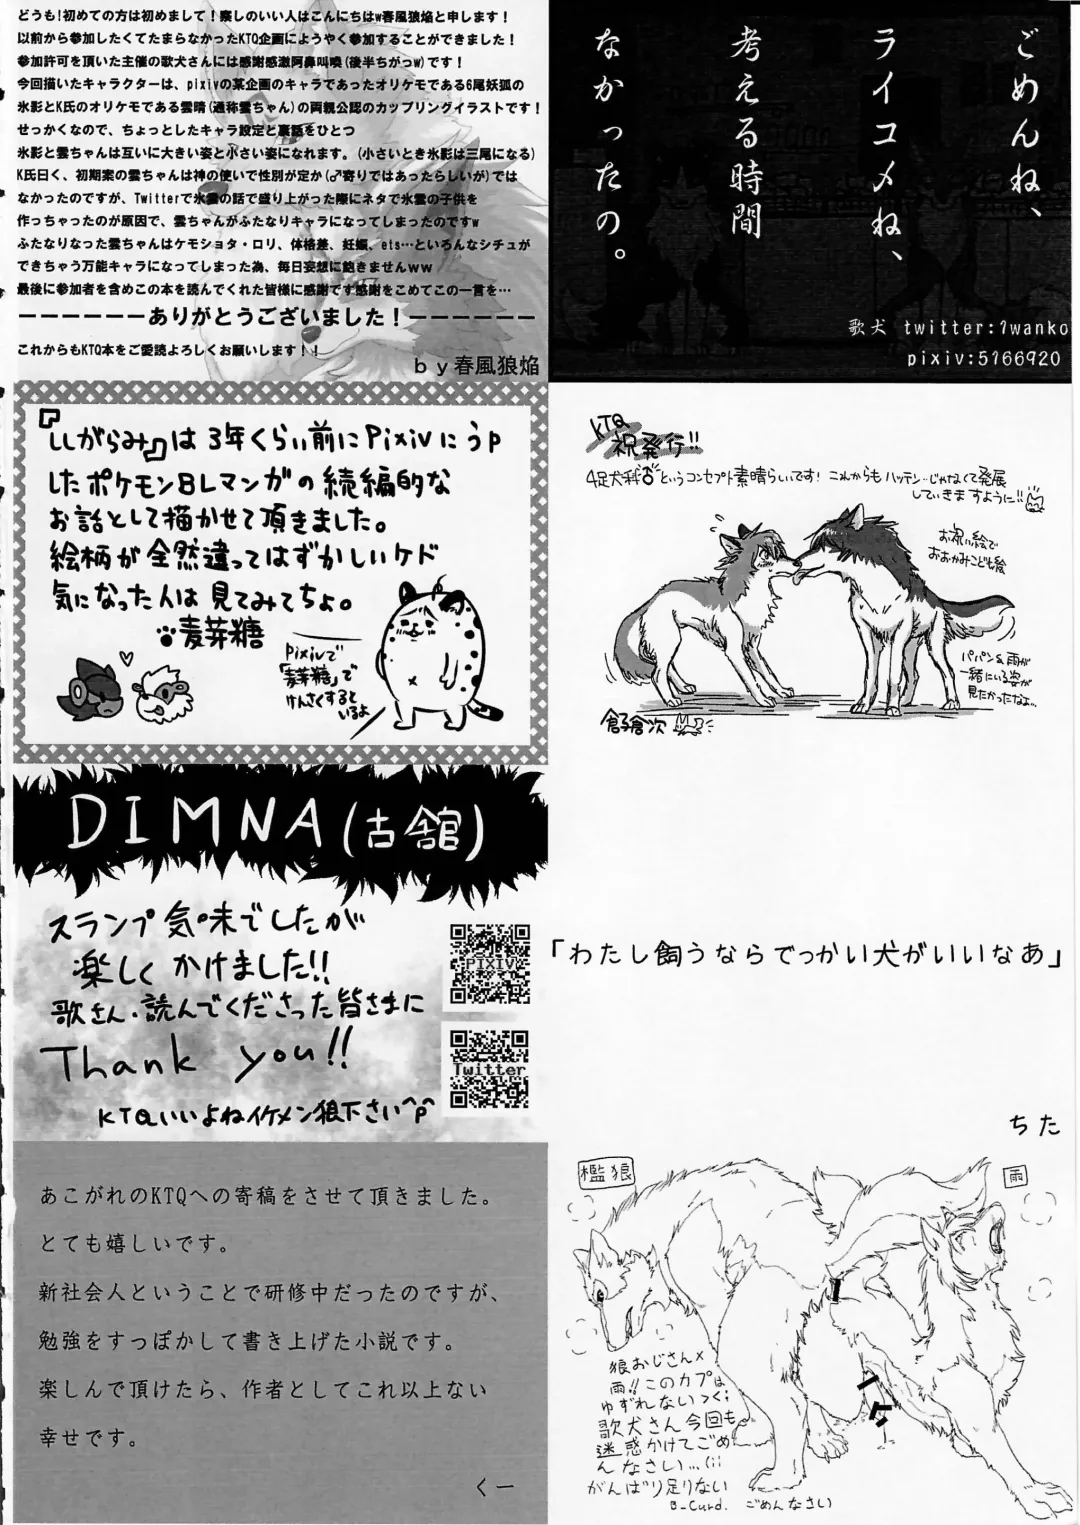 どうも!初めての方は初めまして！察しのいい人はこんにちはw春風狼焔と申します！
以前から参加したくてたまらなかったKTQ企画にようやく参加することができました！
参加許可を頂いた主催の歌犬さんには感謝感激阿鼻叫喚(後半ちがっw)です！
今回描いたキャラクターは、pixivの某企画のキャラであったオリケモである6尾妖狐の
氷影とK氏のオリケモである雲晴(通称雲ちゃん)の両親公認のカップリングイラストです！
せっかくなので、ちょっとしたキャラ設定と裏話をひとつ
氷影と雲ちゃんは互いに大きい姿と小さい姿になれます。(小さいとき氷影は三尾になる)
K氏曰く、初期案の雲ちゃんは神の使いで性別が定か(♂寄りではあったらしいが)では
なかったのですが、Twitterで氷雲の話で盛り上がった際にネタで氷雲の子供を
作っちゃったのが原因で、雲ちゃんがふたなりキャラになってしまったのですw
ふたなりなった雲ちゃんはケモショタ・ロリ、体格差、妊娠、ets…といろんなシチュが
できちゃう万能キャラになってしまった為、毎日妄想に飽きませんww
最後に参加者を含めこの本を読んでくれた皆様に感謝です感謝をこめてこの一言を…
ーーーーーーありがとうございました！ーーーーーー
これからもKTQ本をご愛読よろしくお願いします！！
by春風狼焔
ごめんね、
ライコメね、
考える時間
なかったの。
歌犬 twitter:1wanko
pixiv:5166920
『しがらみ』は3年くらい前にPixivにうp
したポケモンBLマンガの続編的な
お話として描かせて頂きました。
絵柄が全然違ってはずかしいケド
気になった人は見てみてちょ。
麦芽糖
Pixivで
「麦芽糖」で
けんさくすると
いるよ
KTQ
祝発行!!
4足犬科♂というコンセプト素晴らしいです! これからもハッテン…じゃなくて発展
していきますように!!
お祝い絵で
おおかみこども絵
パパン&雨が
一緒にいる姿が
見たかったなよ…
倉子倉次
DIMNA(古舘)
スランプ気味でしたが
楽しくかけました!!
歌さん・読んでくださった皆さまに
Thank you!!
KTQいいよねイケメン狼下さい^p^
PIXIV
Twitter
「わたし飼うならでっかい犬がいいなあ」
ちた
あこがれのKTQへの寄稿をさせて頂きました。
とても嬉しいです。
新社会人ということで研修中だったのですが、
勉強をすっぽかして書き上げた小説です。
楽しんで頂けたら、作者としてこれ以上ない
幸せです。
くー
檻狼
雨
狼おじさん×
雨!!このカプは
ゆずれないっく;
歌犬さん今回も
迷惑かけてごめ
んなさい…(;;
がんばり足りない
B-Curd. ごめんなさい